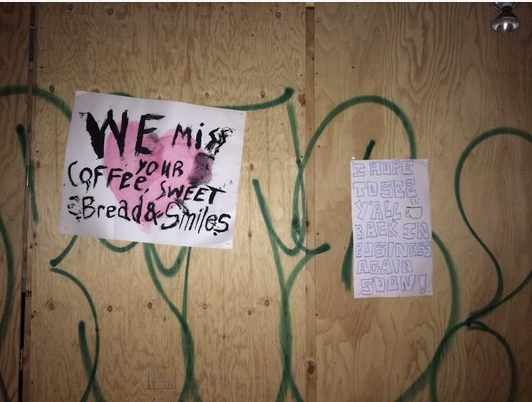 WE Miss
YOUR
COFFEE, SWEET
Bread & Smiles
I HOPE
TO SEE
Y'ALL
BACK IN
BUSINESS
AGAIN
SOON!